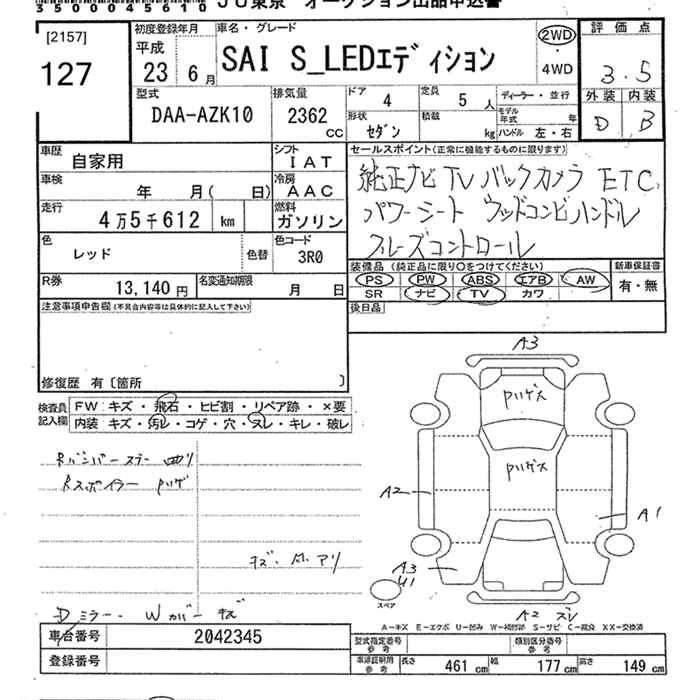 35000045610 JU東京 オークション出品申込書
[2157]
127
初度登録年月
平成
23年 6月
車名・グレード
SAI S_LEDエディション
2WD
・
4WD
評価点
3.5
外装 内装
D B
型式
DAA-AZK10
排気量
2362
CC
ドア
4
定員
5人
形状
セダン
積載
kg
ディーラー・並行
モデル年式 年
ハンドル 左・右
車歴
自家用
シフト
IAT
車検
年 月( 日)
冷房
AAC
走行
4万5千612 km
燃料
ガソリン
色
レッド
色替
色コード
3R0
R券
13,140円
名変通知期限
月 日
セールスポイント(正常に機能するものに限ります)
純正ナビ TV バックカメラ ETC
パワーシート ウッドコンビハンドル
クルーズコントロール
装備品(純正品に限り○をつけてください)
PS PW ABS エアB AW
SR ナビ TV カワ
新車保証書
有・無
後日品
注意事項申告欄(不具合内容等は具体的に記入して下さい)
修復歴 有〔箇所 〕
検査員
記入欄
FW キズ・飛石・ヒビ割・リペア跡・×要
内装 キズ・汚レ・コゲ・穴・スレ・キレ・破レ
Rバンパーステー 曲り
Rスポイラー ハゲ
キズ・凹アリ
Dミラー・Wカバー キズ
A3
ハゲ大
ハゲ大
A2
A1
A3
U1
スペア
A2 スレ
A-キズ E-エクボ U-凹み W-補修跡 S-サビ C-腐食 XX-交換済
車台番号
2042345
登録番号
型式指定番号
参考
類別区分番号
参考
車庫証明用
参考
長さ 461cm 幅 177cm 高さ 149cm